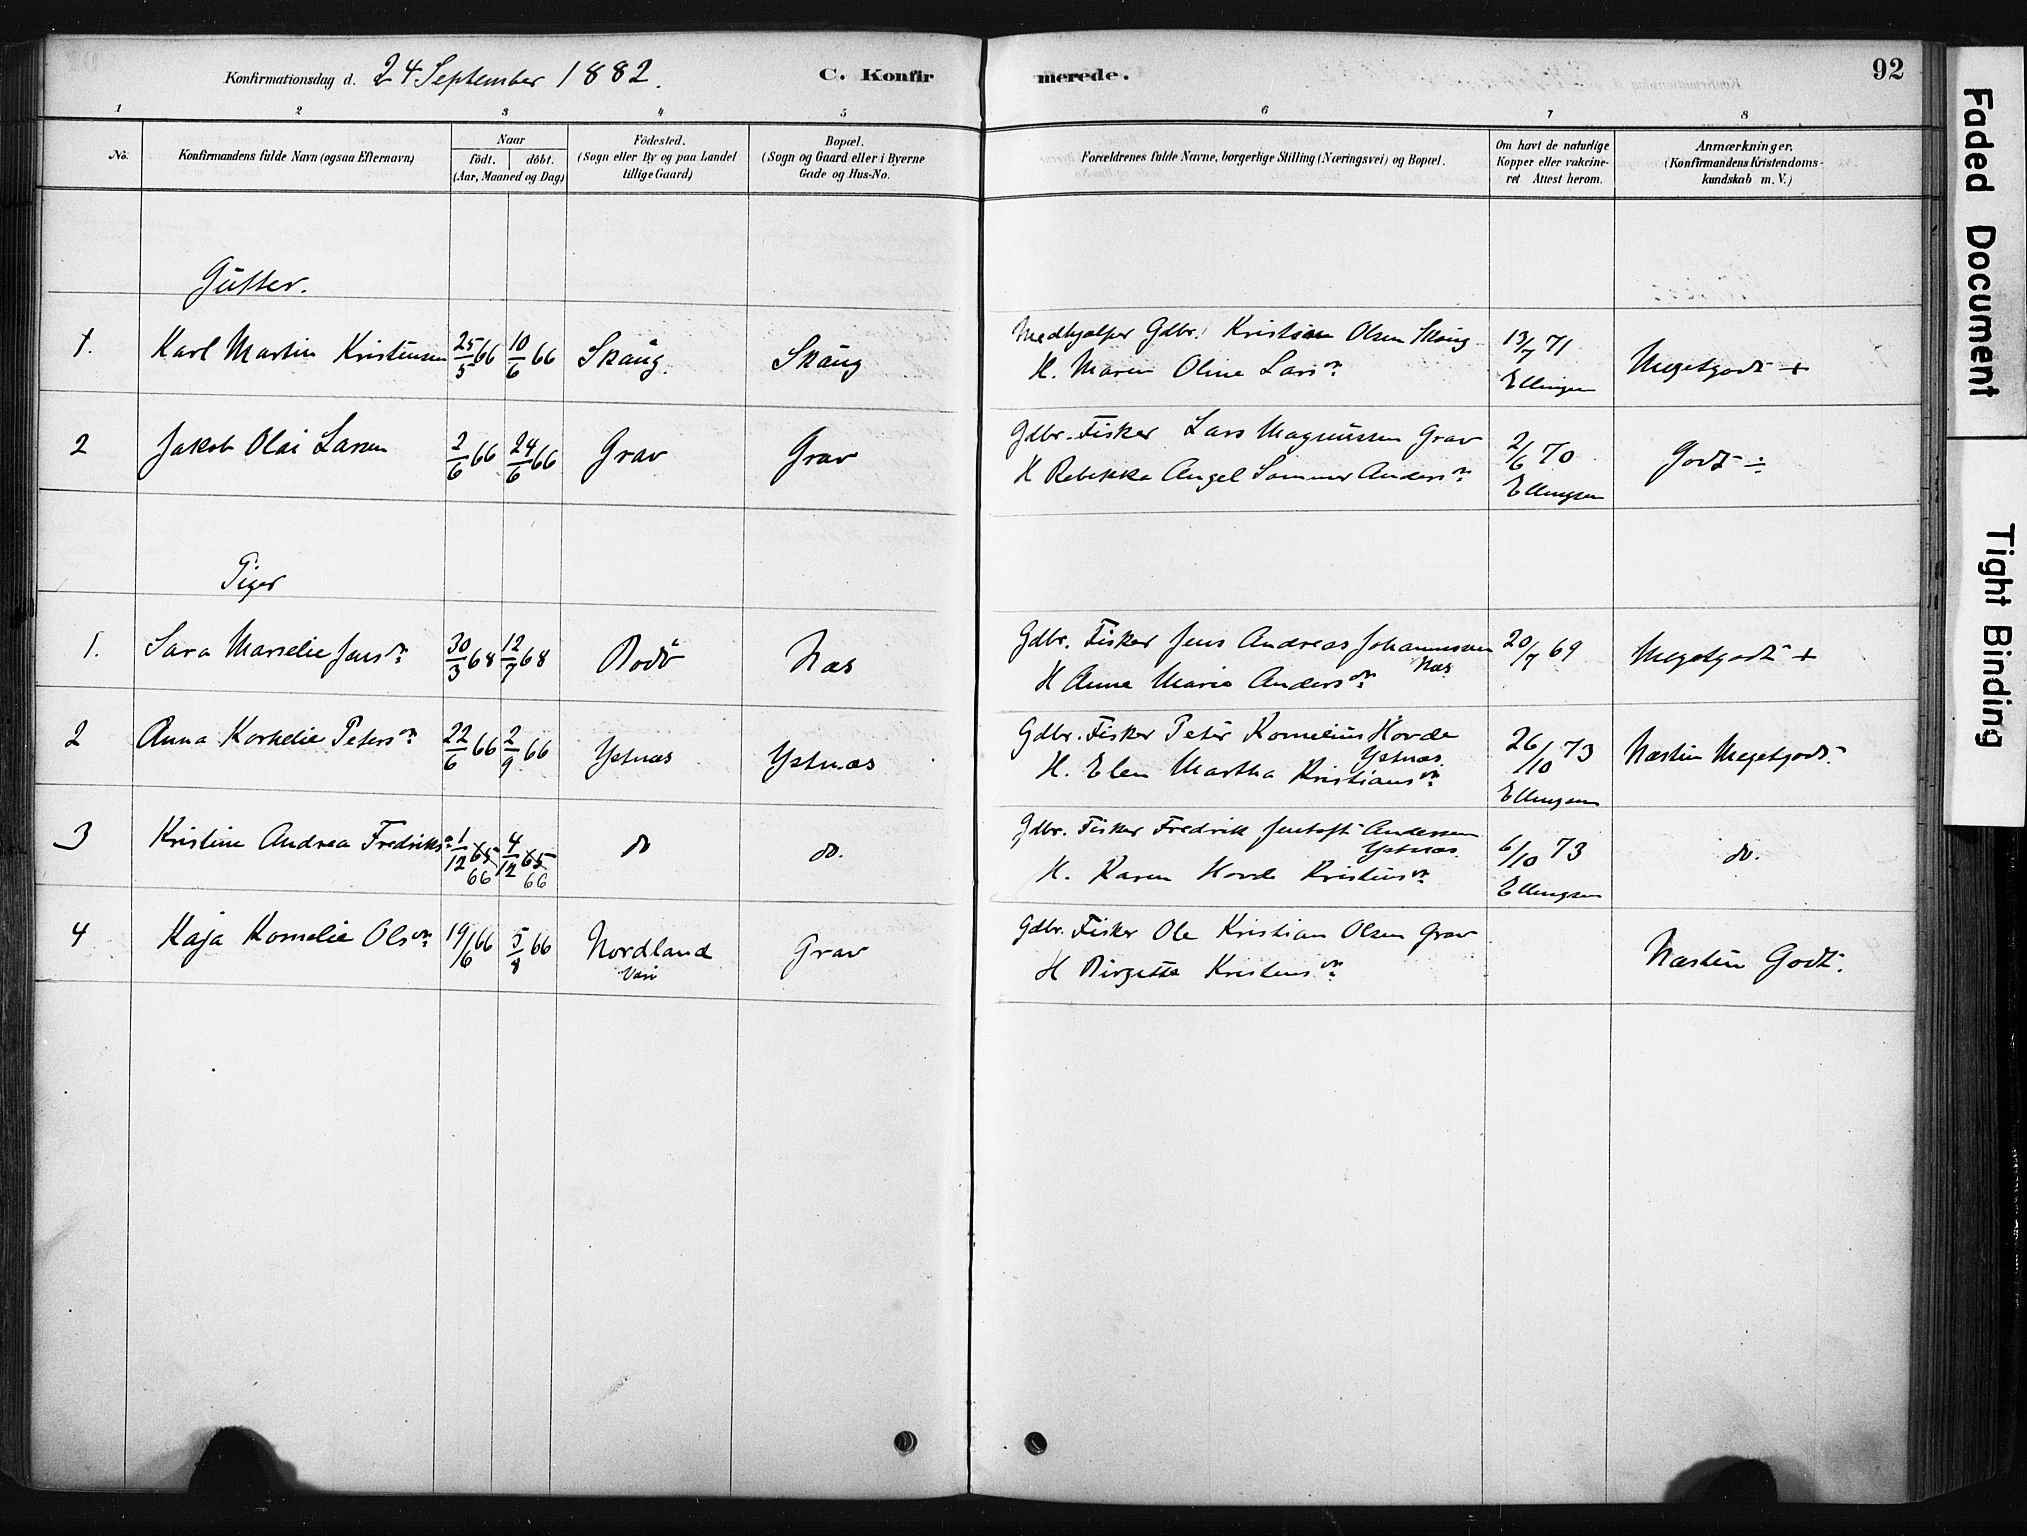 Konfirmationsdag d. 24 September 1882. C. Konfirmerede. 92
1 2 3 4 5 6 7 8
No. Konfirmandens fulde Navn (ogsaa Efternavn) Naar födt. döbt. (Aar, Maaned og Dag) Födested. (Sogn eller By og paa Landet tillige Gaard) Bopæl. (Sogn og Gaard eller i Byerne Gade og Hus-No. Forældrenes fulde Navne, borgerlige Stilling (Næringsvei) og Bopæl. Om havt de naturlige Kopper eller vakcineret Attest herom. Anmærkninger. (Konfirmandens Kristendomskundskab m. V.)
Gutter.
1. Karl Martin Kristensen 25/5 66 10/6 66 Skaug. Skaug Medhjælper Gdbr. Kristian Olsen Skaug 13/7 71 Megetgodt +
H. Maren Oline Larsdr. Ellingsen
2 Jakob Olai Larsen 2/6 66 24/6 66 Grav Grav Gdbr. Fisker Lars Magnussen Grav 2/6 70 Godt ÷
H Rebekka Angel Sommer Andersdr. Ellingsen
Piger
1. Sara Marselie Jensdr. 30/3 68 12/7 68 Bodö Næs Gdbr. Fisker Jens Andreas Johannessen Næs 20/7 69 Megetgodt +
H Anna Maria Andersdr.
2 Anna Kornelie Petersdr. 22/6 66 2/9 66 Ystnæs Ystnæs Gdbr. Fisker Peter Kornelius Hovde Ystnæs 26/10 73 Næsten Megetgodt.
H. Elen Martha Kristiansdr. Ellingsen
3 Kristine Andrea Fredriksdr. 1/12 65 66 4/12 65 66 do do. Gdbr. Fisker Fredrik Jentoft Andersen Ystnæs. 6/10 73 do.
H. Karen Hovde Kristensdr. Ellingsen
4 Kaja Kornelie Olsdr. 19/6 66 5/8 66 Nordland Grav Gdbr. Fisker Ole Kristian Olsen Grav Næsten Godt.
H Birgitte Kristensdr.
Faded Document
Tight Binding